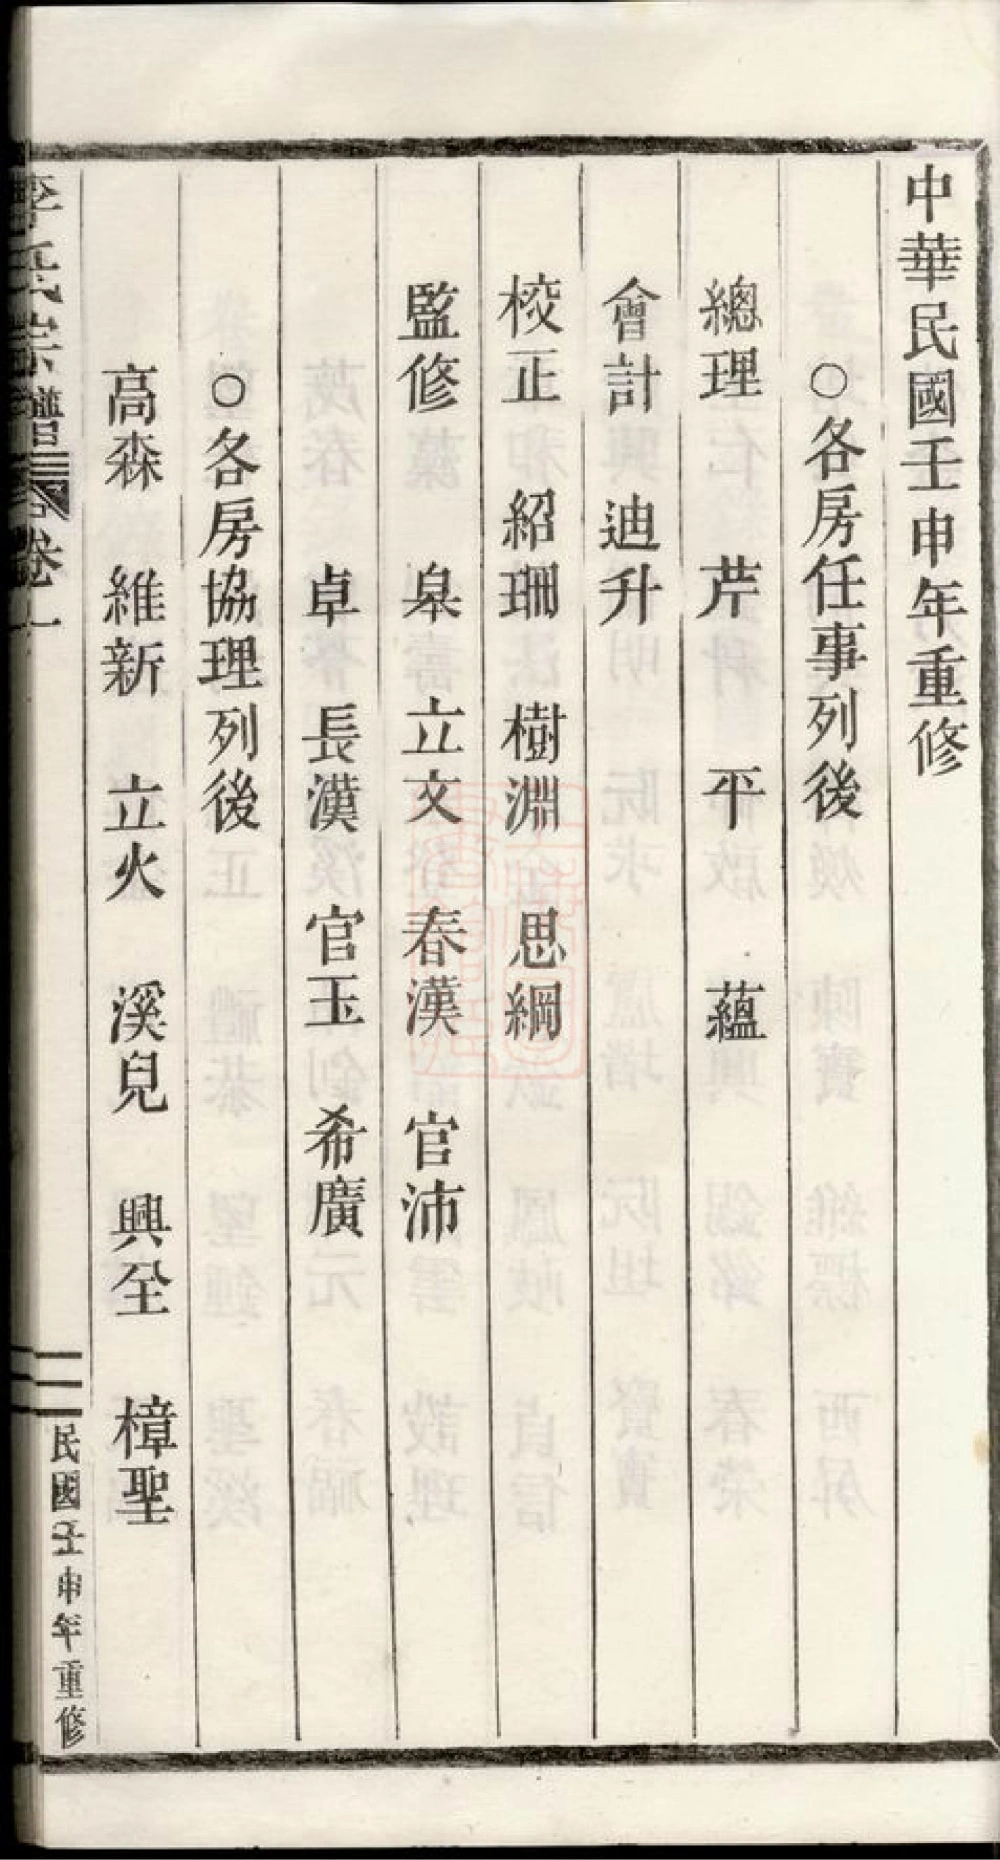 中華民國壬申年重修
○各房任事列後
總理　芹　平　蘊
會計　迪升
校正　紹珊　樹淵　思綱
監修　皋　立文　春漢　官沛
卓　長漢　官玉　希廣
○各房協理列後
高森　維新　立火　溪兒　興全　樟聖
李氏宗譜　卷一
民國壬申年重修